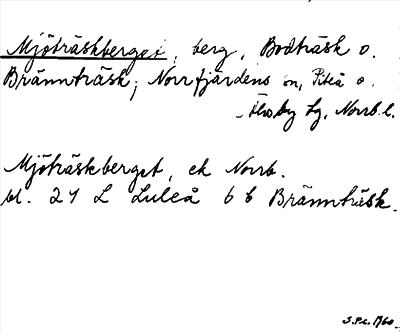 Mjöträskberget, berg, Bodträsk o.
Brännträsk; Norrfjärdens sn, Piteå o.
Älvsby tg, Norrb.l.
Mjöträskberget, ek Norrb.
bl. 24 L Luleå 6 b Brännträsk.
S.P.c. 1960